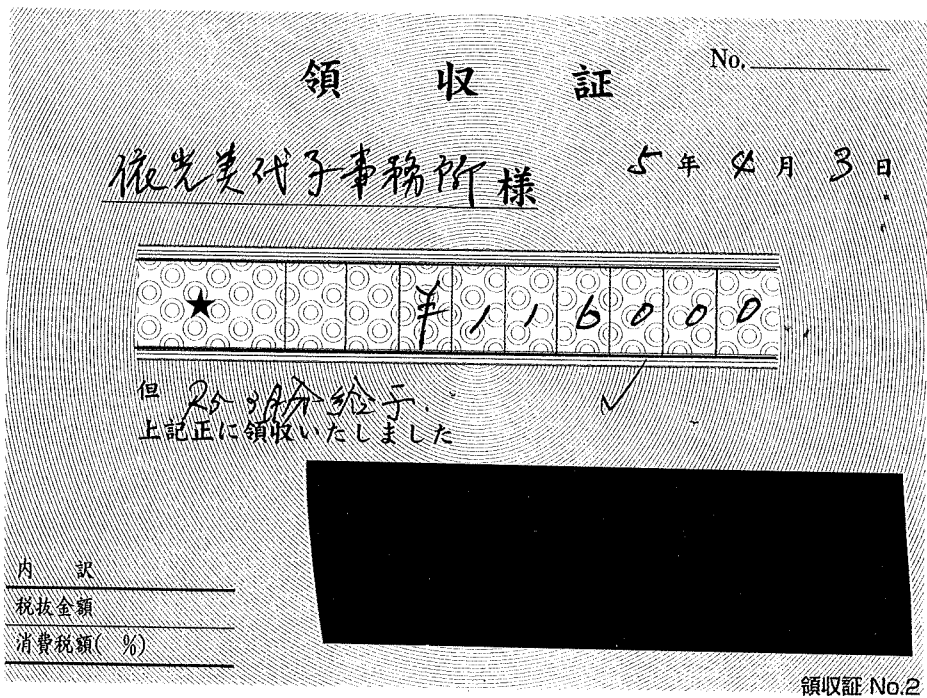 領収証
No.
依光美代子事務所 様
5年4月3日
★ ¥116000
但 R5 3月分給与.
上記正に領収いたしました
内訳
税抜金額
消費税額( %)
領収証 No.2